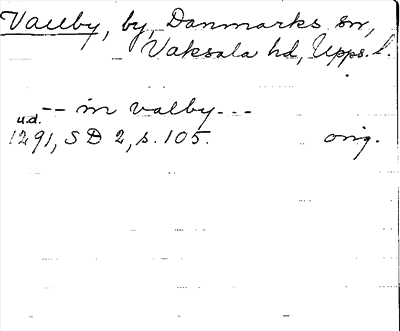 Vallby, by, Danmarks sn,
Vaksala hd, Upps. l.
-- in valby ---
u.d.
1291, SD 2, s. 105. orig.